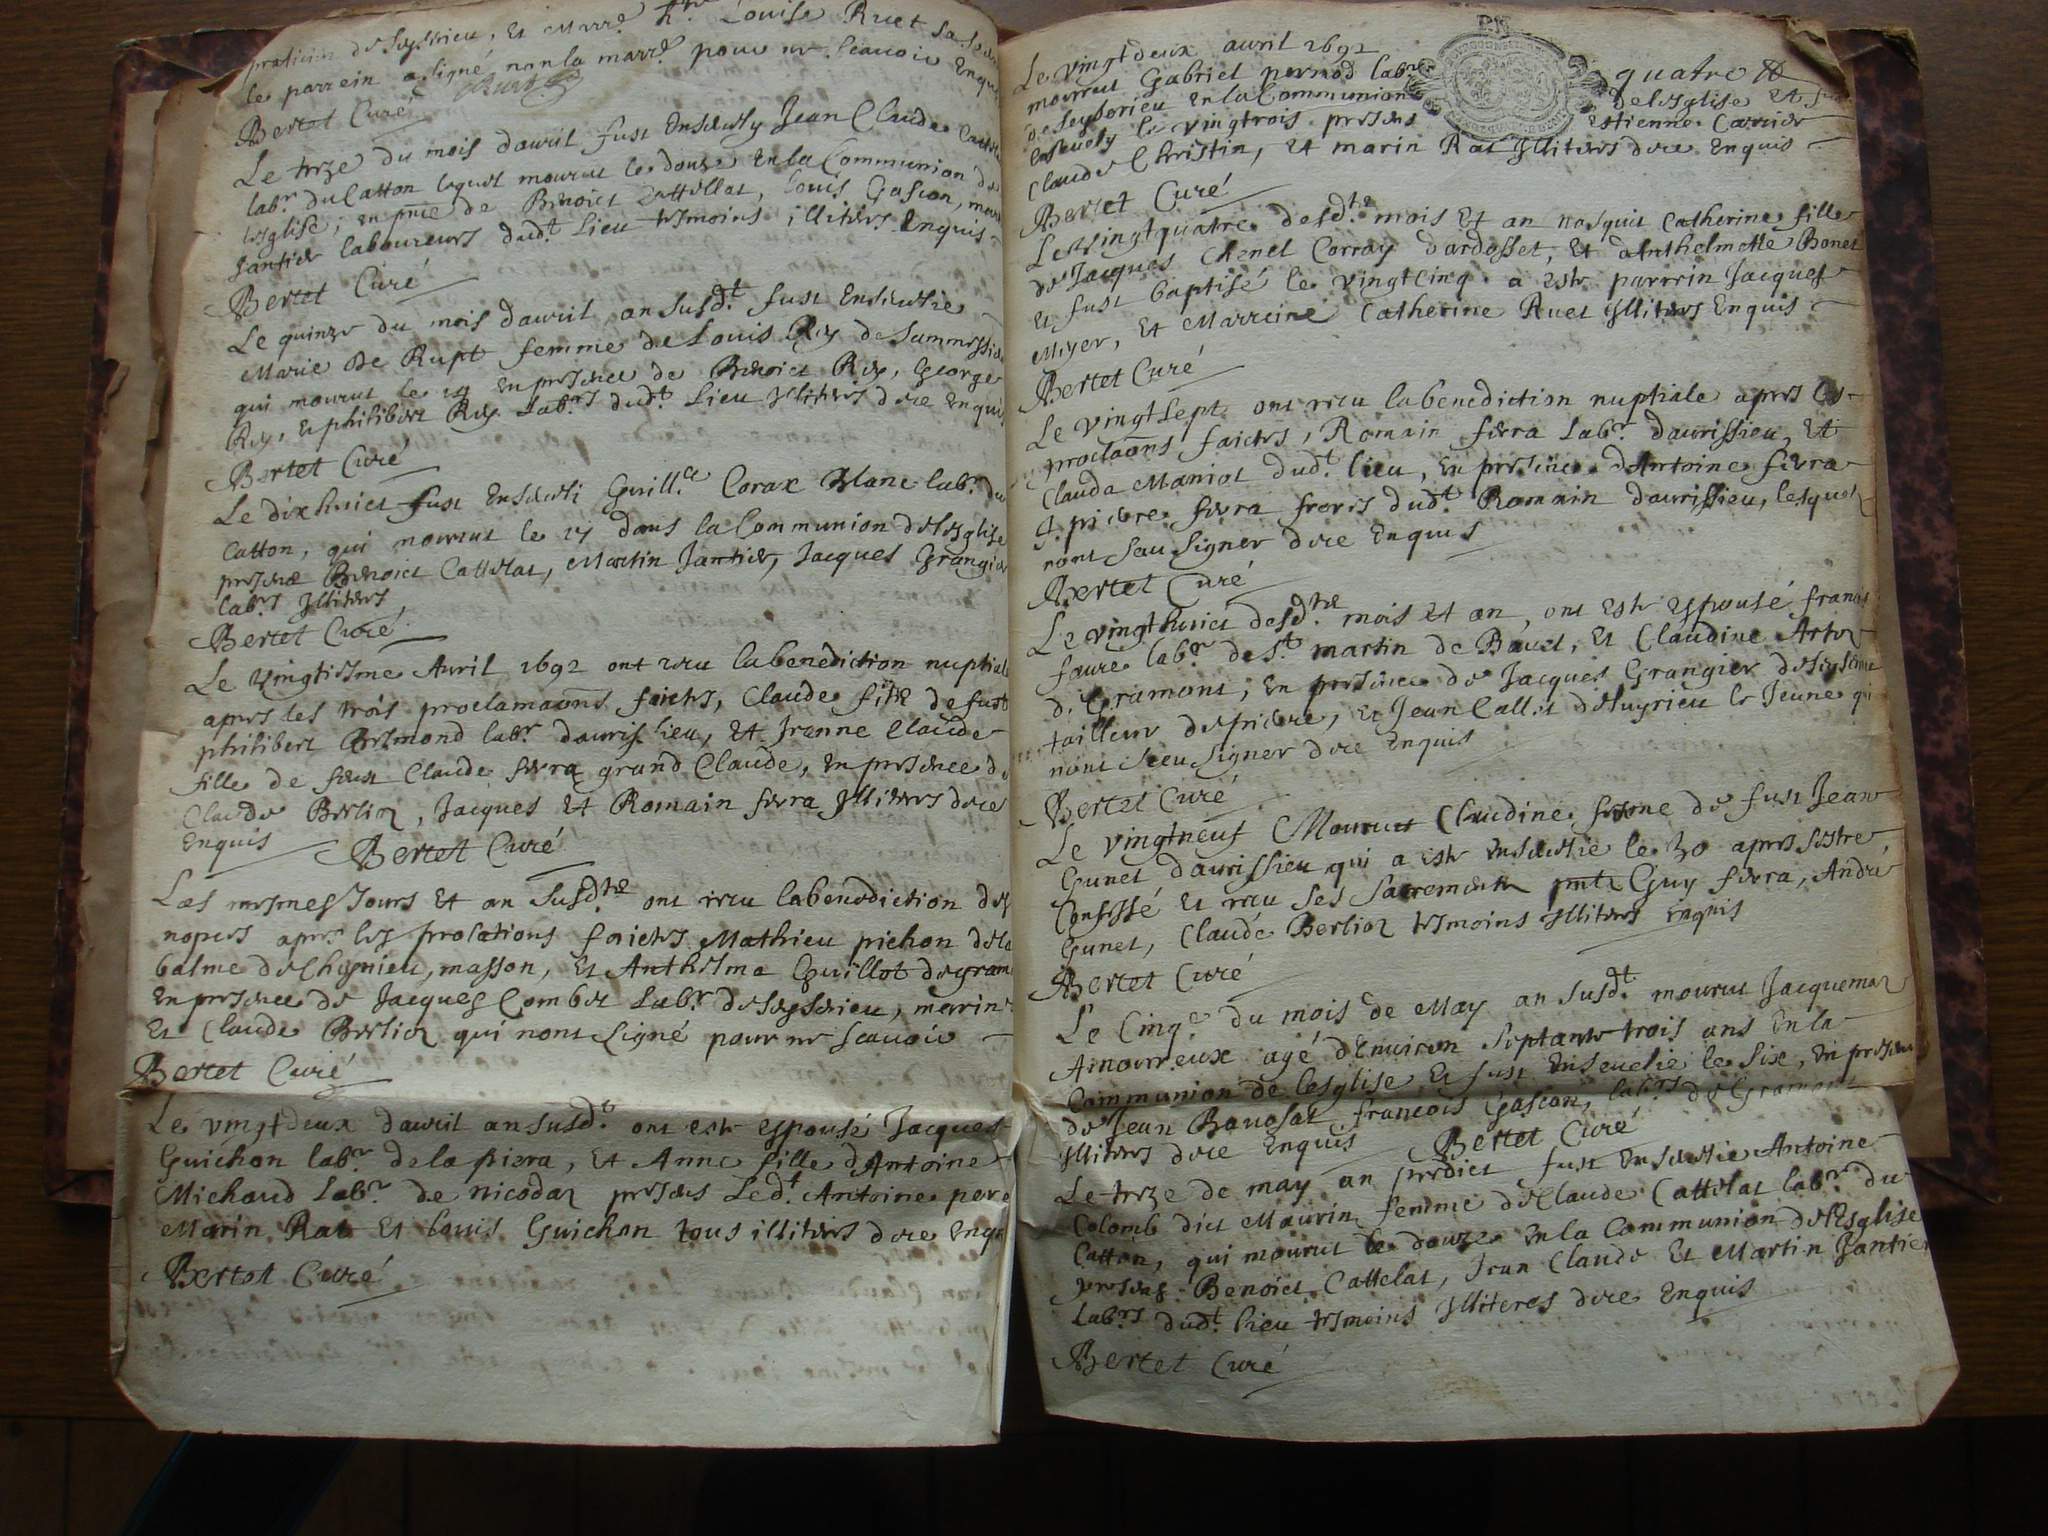 praticien de Seyssieu, et Marr.e h.te Louise Ruet sa
le parrein a signé non la marr.e pour ne scauoir Enquis
Bertet Curé
Le treze du mois dauril fust Enseuely Jean Claude
labr. du Catton lequel mourut le douze En la Communion de
lesglise, en pnce de Benoict Cattellat, Louis Gascon,
Jantier laboureurs dudt. Lieu tesmoins illiteres Enquis
Bertet Curé
Le quinze du mois dauril an susdt. fust Enseuelie
Marie De Rupt femme de Louis Rey de
qui mourut le 14 en presence de Benoict Rey, George
Rey, et philibert Rey Labrs. dudt. Lieu Jlliteres de ce enquis
Bertet Curé
Le dixhuict fust Enseueli Guill.e Corax Blanc labr. du
Catton, qui mourut le 17 dans la Communion de lesglise
presence Benoict Cattelat, Martin Jantier, Jacques Grangier
labrs. Jlliteres
Bertet Curé
Le vingtiesme Auril 1692 ont receu la benediction nuptiale
apres les trois proclamaons faictes, Claude filz de fust
philibert Bremond labr. daurissieu, et Jeanne Claude
fille de feu Claude ferra grand Claude, en presence de
Claude Berlioz, Jacques Et Romain ferra Jlliteres de ce
Enquis Bertet Curé
Les mesmes Jours Et an susdtz. ont receu la benediction des
nopces apres les proclations faictes Mathieu pichon de la
balme de Chignieu, masson, et Anthelma Guillot de gram
En presence de Jacques Combet Labr. de Seysrieu,
Et Claude Berlioz qui nont signé pour ne scauoir
Bertet Curé
Le vingtdeux dauril an susdt. ont este espousé Jacques
Guichon labr. de la piera, et Anne fille dAntoine
Michaud Labr. de nicodaz presens Ledt. Antoine pere
Marin Rat Et Louis Guichon tous illiteres de ce Enquis
Bertet Curé
Le vingtdeux auril 1692 quatre
mourut Gabriel pernod labr.
de Seyborieu En la Communion de lesglise et fut
Enseuely le vingtrois presens Estienne Carrier
Claude Christin, et marin Rat Jlliteres de ce Enquis
Bertet Curé
Le vingtquatre desdts. mois et an nasquit Catherine fille
de Jacques Chenel Corray dardosset, et dAnthelmette Bonet
Et fust baptisé le vingtcinq. a este parrein Jacques
Meyer, Et Marreine Catherine Ruet Jlliteres Enquis
Bertet Curé
Le vingtsept ont receu la benediction nuptiale apres les
proclaons faictes, Romain ferra Labr. daurissieu, Et
Clauda Maniot dudt. lieu, en presence dAntoine ferra
Et pierre ferra freres dudt. Romain daurissieu, lesquelz
nont sceu signer de ce Enquis
Bertet Curé
Le vingthuict desdtz. mois et an, ont este espousé francois
faure labr. de St. martin de Bauel, et Claudine
de Gramont, en presence de Jacques Grangier de
tailleur de pierre, et Jean Callet de luyrieu le Jeune qui
nont sceu signer de ce enquis
Bertet Curé
Le vingtneuf Mourut Claudine feme de fust Jean
Gunet daurissieu qui a este enseuelie le 30 apres sestre
Confessé et receu ses sacrements pntz Guy ferra, André
Gunet, Claude Berlioz tesmoins Jlliteres Enquis
Bertet Curé
Le Cinqe. du mois de May an susdt. mourut Jacquemaz
Amourreux agé denuiron septante trois ans En la
Communion de lesglise, et fust enseuelie le six, en presence
de Jean Bauosat francois Gascon, labrs. de Gramont
Jlliteres de ce Enquis Bertet Curé
Le treze de may an predict fust enseuelie Antoine
Colomb dict Maurin femme de Claude Cattelat labr. du
Catton, qui mourut le douze En la Communion de lEsglise
presens Benoict Cattelat, Jean Claude Et Martin Jantier
Labrs. dudt. lieu tesmoins Jlliteres de ce Enquis
Bertet Curé